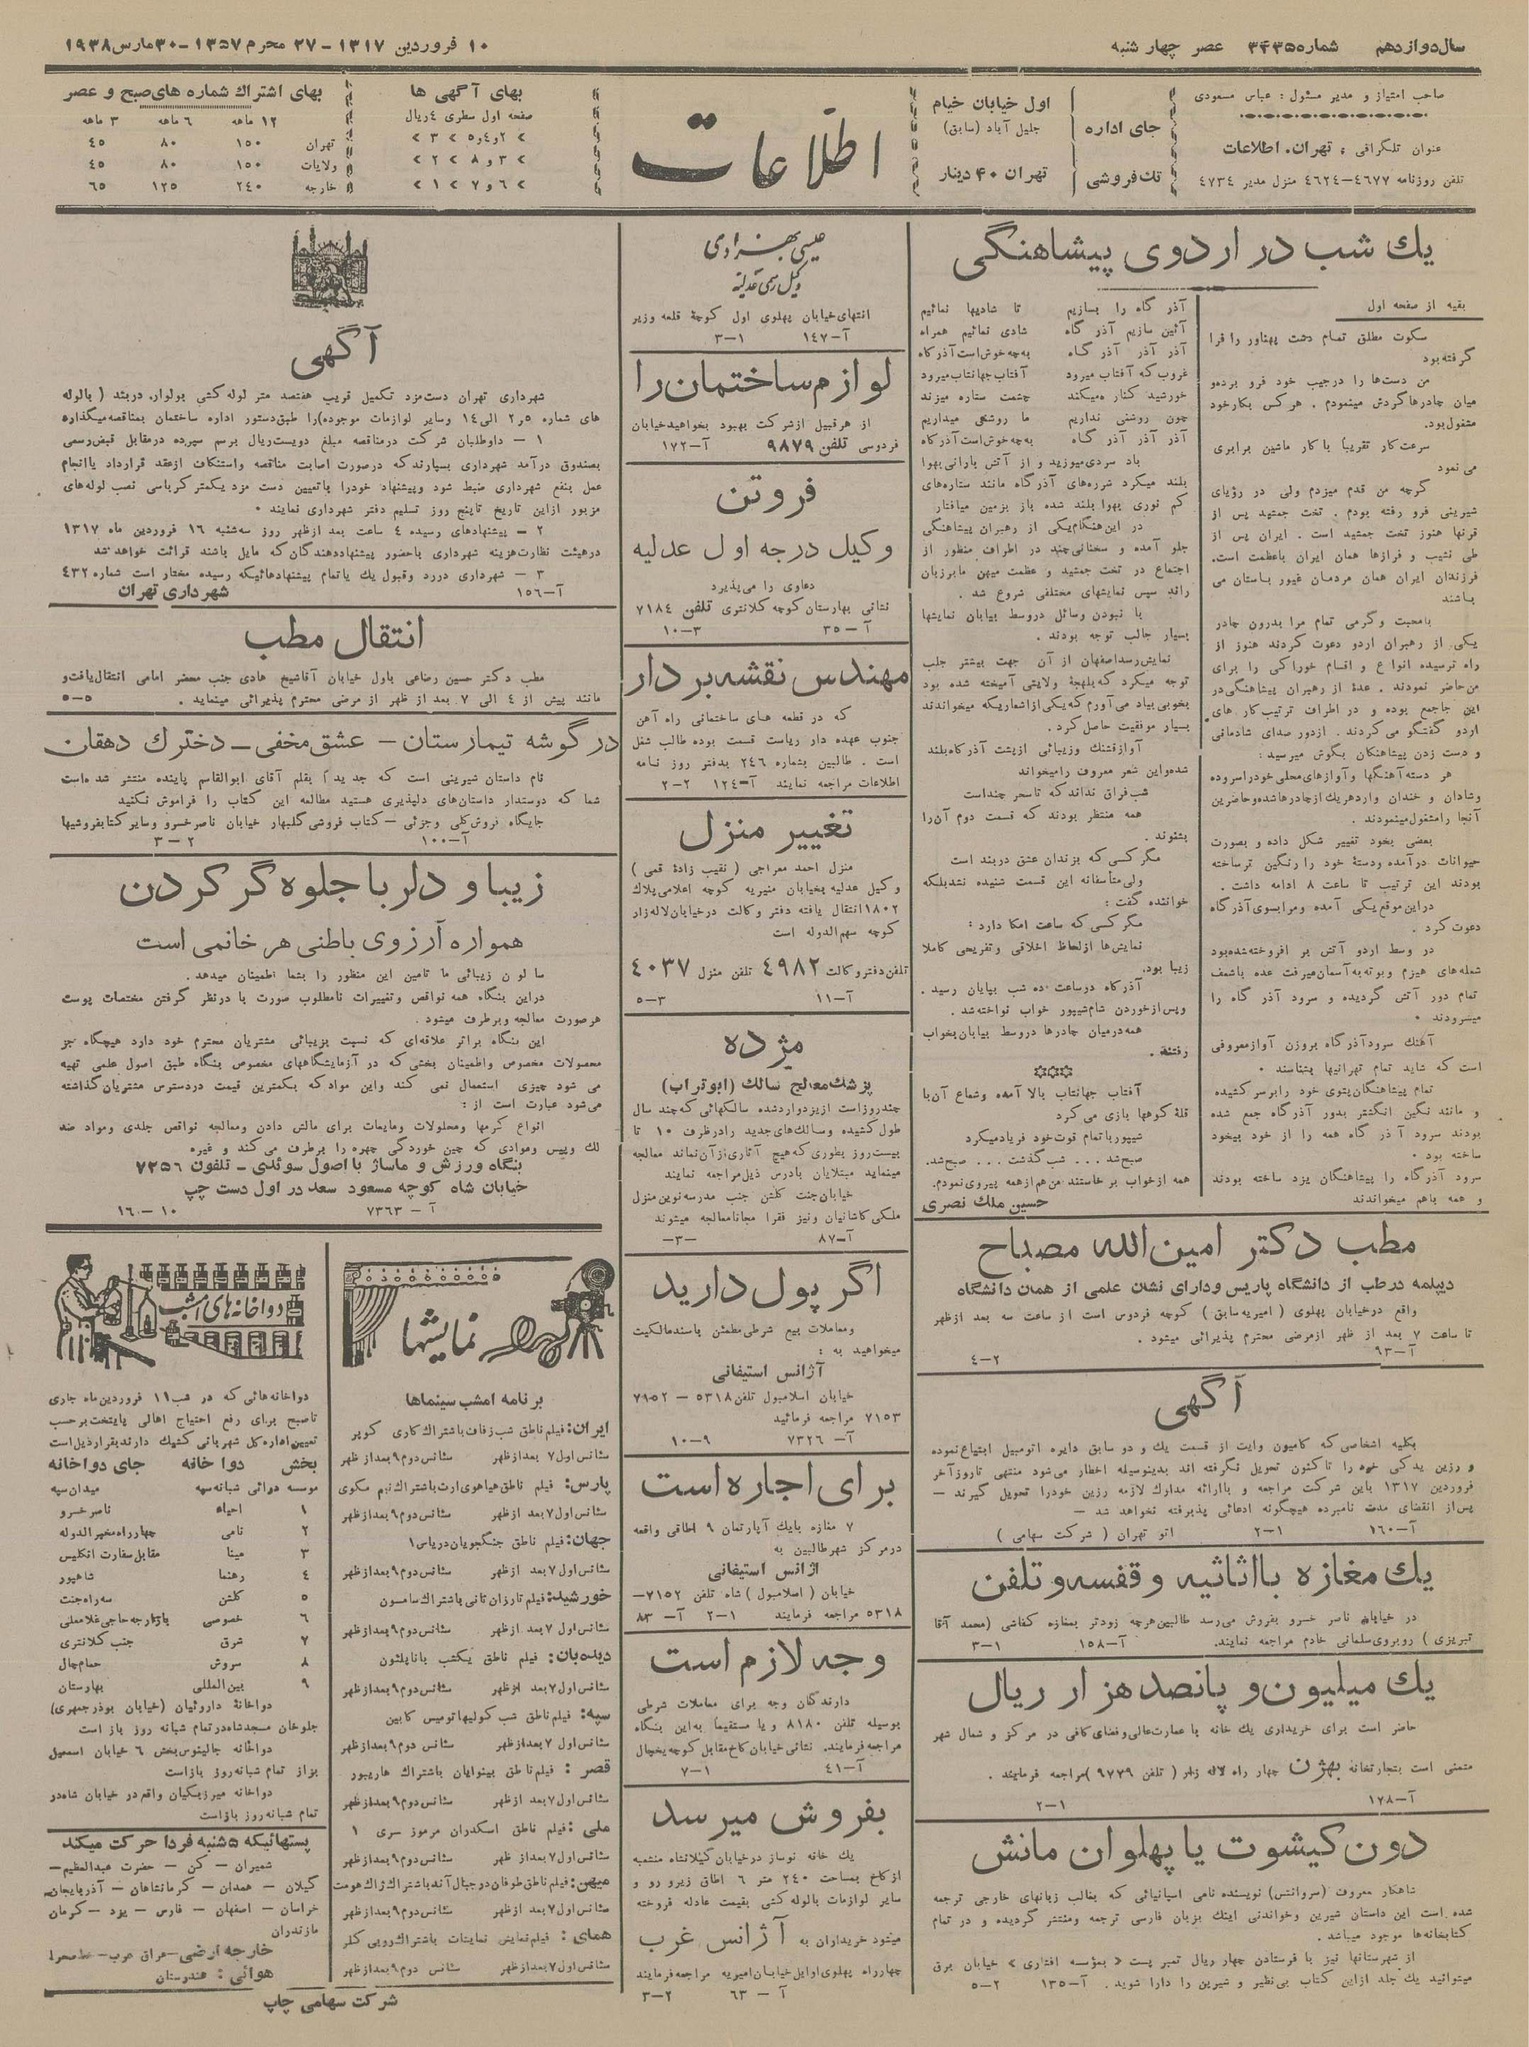 سال دوازدهم شماره ۳۴۳۵ عصر چهارشنبه
۱۰ فروردین ۱۳۱۷ – ۲۷ محرم ۱۳۵۷ – ۳۰ مارس ۱۹۳۸
صاحب امتیاز و مدیر مسئول : عباس مسعودی
عنوان تلگرافی : تهران، اطلاعات
تلفن روزنامه ۴۶۷۷–۴۶۲۴ منزل مدیر ۴۷۳۴
جای اداره
اول خیابان خیام
جلیل آباد (سابق)
تک فروشی
تهران ۴۰ دینار
اطلاعات
بهای آگهی ها
صفحه اول سطری ۴ ریال
> ۲ و ۴ و ۵ > ۳ >
> ۳ و ۸ > ۲ >
> ۶ و ۷ > ۱ >
بهای اشتراك شماره های صبح و عصر
۱۲ ماهه ۶ ماهه ۳ ماهه
تهران ۱۵۰ ۸۰ ۴۵
ولایات ۱۵۰ ۸۰ ۴۵
خارجه ۲۴۰ ۱۲۵ ۶۵
یك شب در اردوی پیشاهنگی
بقیه از صفحه اول
سکوت مطلق تمام دشت پهناور را فرا
گرفته بود
من دست‌ها را در جیب خود فرو برده و
میان چادرها گردش مینمودم . هر کس بکار خود
مشغول بود.
سرعت کار تقریباً با کار ماشین برابری
می نمود
گرچه من قدم میزدم ولی در رؤیای
شیرینی فرو رفته بودم . تخت جمشید پس از
قرنها هنوز تخت جمشید است . ایران پس از
طی نشیب و فرازها همان ایران با عظمت است.
فرزندان ایران همان مردمان غیور باستان می
باشند
با محبت و گرمی تمام مرا بدرون چادر
یکی از رهبران اردو دعوت کردند هنوز از
راه نرسیده انواع و اقسام خوراکی را برای
من حاضر نمودند . عدهٔ از رهبران پیشاهنگی در
این جا جمع بوده و در اطراف ترتیب کار های
اردو گفتگو می کردند . از دور صدای شادمانی
و دست زدن پیشاهنگان بگوش میرسید :
هر دسته آهنگها و آوازهای محلی خود را سروده
و شادان و خندان وارد هر یك از چادرها شده و حاضرین
آنجا را مشغول مینمودند .
بعضی بخود تغییر شکل داده و بصورت
حیوانات درآمده و دستهٔ خود را رنگین تر ساخته
بودند این ترتیب تا ساعت ۸ ادامه داشت .
در این موقع یکی آمده و مرا بسوی آذرگاه
دعوت کرد .
در وسط اردو آتش بر افروخته شده بود
شعله های هیزم و بوته به آسمان میرفت عده با شعف
تمام دور آتش گردیده و سرود آذر گاه را
میسرودند .
آهنگ سرود آذرگاه بروزن آواز معروفی
است که شاید تمام تهرانیها بشناسند .
تمام پیشاهنگان پتوی خود را بر سر کشیده
و مانند نگین انگشتر بدور آذرگاه جمع شده
بودند سرود آذر گاه همه را از خود بیخود
ساخته بود .
سرود آذرگاه را پیشاهنگان یزد ساخته بودند
و همه باهم میخواندند
آذر گاه را بسازیم تا شادیها نمائیم
آئین سازیم آذر گاه شادی نمائیم همراه
آذر آذر آذر گاه به چه خوش است آذرگاه
غروب که آفتاب میرود آفتاب جهانتاب میرود
خورشید کنار میکند چشمت ستاره میزند
چون روشنی نداریم ما روشگی میداریم
آذر آذر آذر گاه به چه خوش است آذرگاه
باد سردی میوزید و از آتش بارانی بهوا
بلند میکرد شررهای آذرگاه مانند ستاره‌های
کم نوری بهوا بلند شده باز بزمین میافتاد
در این هنگام یکی از رهبران پیشاهنگی
جلو آمده و سخنانی چند در اطراف منظور از
اجتماع در تخت جمشید و عظمت میهن ما بر زبان
راند سپس نمایشهای مختلفی شروع شد .
با نبودن وسائل در وسط بیابان نمایشها
بسیار جالب توجه بودند .
نمایش رسد اصفهان از آن جهت بیشتر جلب
توجه میکرد که بلهجهٔ ولایتی آمیخته شده بود
بخوبی بیاد می آورم که یکی از اشعاریکه میخواندند
بسیار موفقیت حاصل کرد .
آواز قشنگ و زیبائی از پشت آذرگاه بلند
شده و این شعر معروف را میخواند
شب فراق نداند که تا سحر چند است
همه منتظر بودند که قسمت دوم آن را
بشنوند .
مگر کسی که بزندان عشق در بند است
ولی متأسفانه این قسمت شنیده نشد بلکه
خواننده گفت :
مگر کسی که ساعت امکا دارد :
نمایش‌ها از لحاظ اخلاقی و تفریحی کاملا
زیبا بود.
آذرگاه دو ساعت ده شب بپایان رسید .
و پس از خوردن شام شیپور خواب نواخته شد .
همه در میان چادرها در وسط بیابان بخواب
رفتند .
آفتاب جهانتاب بالا آمده و شعاع آن با
قلهٔ کوهها بازی می کرد
شیپور با تمام قوت خود فریاد میکرد
صبح شد ... شب گذشت ... صبح شد.
همه از خواب بر خاستند من هم از همه پیروی نمودم.
حسین ملك نصری
مطب دکتر امین الله مصباح
دیپلمه در طب از دانشگاه پاریس و دارای نشان علمی از همان دانشگاه
واقع در خیابان پهلوی ( امیریه سابق ) کوچه فردوس است از ساعت سه بعد از ظهر
تا ساعت ۷ بعد از ظهر از مرضی محترم پذیرائی میشود .
آ–۹۳ ۲–۴
آگهی
بکلیه اشخاصی که کامیون وایت از قسمت یك و دو سابق دایره اتومبیل ابتیاع نموده
و رزین یدکی خود را تا کنون تحویل نگرفته اند بدینوسیله اخطار می‌شود منتهی تا روز آخر
فروردین ۱۳۱۷ باین شرکت مراجعه و با ارائه مدارك لازمه رزین خود را تحویل گیرند –
پس از انقضای مدت نامبرده هیچگونه ادعائی پذیرفته نخواهد شد –
آ–۱۶۰ ۱–۲ اتو تهران ( شرکت سهامی )
یك مغازه با اثاثیه و قفسه و تلفن
در خیابان ناصر خسرو بفروش می رسد طالبین هرچه زودتر بمغازه کفاشی (محمد آقا
تبریزی ) روبروی سلمانی خادم مراجعه نمایند. آ–۱۵۸ ۱–۳
یك میلیون و پانصد هزار ریال
حاضر است برای خریداری یك خانه با عمارت عالی و فضای کافی در مرکز و شمال شهر
متمنی است بتجارتخانه بهژن چهار راه لاله زار ( تلفن ۹۷۷۹ ) مراجعه فرمایند .
آ–۱۷۸ ۱–۲
دون کیشوت یا پهلوان مانش
شاهکار معروف (سروانتس) نویسنده نامی اسپانیائی که بغالب زبانهای خارجی ترجمه
شده است این داستان شیرین و خواندنی اینك بزبان فارسی ترجمه و منتشر گردیده و در تمام
کتابخانه‌ها موجود میباشد .
از شهرستانها نیز با فرستادن چهار ریال تمبر پست « بمؤسسه افشاری » خیابان برق
میتوانید یك جلد از این کتاب بی‌نظیر و شیرین را دارا شوید . آ–۱۳۵ ۲–۵
عیسی بهزادی
وکیل رسمی عدلیه
انتهای خیابان پهلوی اول کوچهٔ قلعه وزیر
آ–۱۴۷ ۱–۳
لوازم ساختمان را
از هر قبیل از شرکت بهبود بخواهید خیابان
فردوسی تلفن ۹۸۷۹ آ–۱۷۲
فروتن
وکیل درجه اول عدلیه
دعاوی را می‌پذیرد
نشانی بهارستان کوچه کلانتری تلفن ۷۱۸۴
آ–۳۵ ۳–۱۰
مهندس نقشه بردار
که در قطعه های ساختمانی راه آهن
جنوب عهده دار ریاست قسمت بوده طالب شغل
است . طالبین بشماره ۲۴۶ بدفتر روز نامه
اطلاعات مراجعه نمایند آ–۱۲۴ ۲–۲
تغییر منزل
منزل احمد معراجی ( نقیب زادهٔ قمی )
وکیل عدلیه بخیابان منیریه کوچه اعلامی پلاك
۱۸۰۲ انتقال یافته دفتر وکالت در خیابان لاله زار
کوچه سهم الدوله است
تلفن دفتر وکالت ۴۹۸۲ تلفن منزل ۴۰۳۷
آ–۱۱ ۳–۵
مژده
پزشك معالج سالك (ابوتراب)
چند روز است از یزد وارد شده سالکهائی که چند سال
طول کشیده و سالك های جدید را در ظرف ۱۰ تا
بیست روز بطوری که هیچ آثاری از آن نماند معالجه
مینماید مبتلایان بادرس ذیل مراجعه نمایند
خیابان جنت گلشن جنب مدرسه نوین منزل
ملکی کاشانیان و نیز فقرا مجانا معالجه میشوند
آ–۸۷ –۳–
اگر پول دارید
و معاملات بیع شرطی مطمئن با سند مالکیت
میخواهید به :
آژانس استیفانی
خیابان اسلامبول تلفن ۵۳۱۸ – ۷۹۵۲
۷۱۵۳ مراجعه فرمائید
آ– ۷۳۲۶ ۹–۱۰
برای اجاره است
۷ مغازه با یك آپارتمان ۹ اطاقی واقعه
در مرکز شهر طالبین به
آژانس استیفانی
خیابان ( اسلامبول ) شاه تلفن ۷۱۵۲–
۵۳۱۸ مراجعه فرمایند ۱–۲ آ– ۸۳
وجه لازم است
دارندگان وجه برای معاملات شرطی
بوسیله تلفن ۸۱۸۰ و یا مستقیماً به این بنگاه
مراجعه فرمایند. نشانی خیابان کاخ مقابل کوچه یخچال
آ–۴۱ ۱–۷
بفروش میرسد
یك خانه نوساز در خیابان کیلانشاه منشعبه
از کاخ بمساحت ۲۴۰ متر ۶ اطاق زیر و رو و
سایر لوازمات با لوله کشی بقیمت عادله فروخته
میشود خریداران به آژانس غرب
چهارراه پهلوی اوایل خیابان امیریه مراجعه فرمایند
آ– ۶۳ ۲–۳
آگهی
شهرداری تهران دست مزد تکمیل قریب هفتصد متر لوله کشی بولوار. دربند ( با لوله
های شماره ۲٫۵ الی ۱۴ و سایر لوازمات موجوده) را طبق دستور اداره ساختمان بمناقصه میگذارد
۱ – داوطلبان شرکت در مناقصه مبلغ دویست ریال برسم سپرده در مقابل قبض رسمی
بصندوق درآمد شهرداری بسپارند که در صورت اصابت مناقصه و استنکاف از عقد قرارداد یا انجام
عمل بنفع شهرداری ضبط شود و پیشنهاد خود را با تعیین دست مزد یکمتر کرباسی نصب لوله های
مزبور از این تاریخ تا پنج روز تسلیم دفتر شهرداری نمایند .
۲ – پیشنهادهای رسیده ۴ ساعت بعد از ظهر روز سه شنبه ۱۶ فروردین ماه ۱۳۱۷
در هیئت نظارت هزینه شهرداری با حضور پیشنهاد دهندگان که مایل باشند قرائت خواهد شد
۳ – شهرداری در رد و قبول یك یا تمام پیشنهادهائیکه رسیده مختار است شماره ۴۳۲
آ–۱۵۶ شهرداری تهران
انتقال مطب
مطب دکتر حسین رضاعی باول خیابان آقا شیخ هادی جنب محضر امامی انتقال یافت و
مانند پیش از ۴ الی ۷ بعد از ظهر از مرضی محترم پذیرائی مینماید . ۵–۵
در گوشه تیمارستان – عشق مخفی – دخترك دهقان
نام داستان شیرینی است که جدیداً بقلم آقای ابوالقاسم پاینده منتشر شده است
شما که دوستدار داستان‌های دلپذیری هستید مطالعه این کتاب را فراموش نکنید
جایگاه فروش کلی و جزئی – کتاب فروشی گلبهار خیابان ناصر خسرو و سایر کتابفروشیها
آ–۱۰۰ ۲–۳
زیبا و دلربا جلوه گر کردن
همواره آرزوی باطنی هر خانمی است
سالون زیبائی ما تامین این منظور را بشما اطمینان میدهد .
در این بنگاه همه نواقص و تغییرات نامطلوب صورت با در نظر گرفتن مختصات پوست
هر صورت معالجه و برطرف میشود .
این بنگاه براثر علاقه‌ای که نسبت بزیبائی مشتریان محترم خود دارد هیچگاه جز
محصولات مخصوص و اطمینان بخشی که در آزمایشگاههای مخصوص بنگاه طبق اصول علمی تهیه
می شود چیزی استعمال نمی کند و این مواد که بکمترین قیمت در دسترس مشتریان گذاشته
می‌شود عبارت است از :
انواع کرمها و محلولات و مایعات برای مالش دادن و معالجه نواقص جلدی و مواد ضد
لك و پیس و موادی که چین خوردگی چهره را برطرف می کند و غیره
بنگاه ورزش و ماساژ با اصول سوئدی – تلفون ۷۲۵۶
خیابان شاه کوچه مسعود سعد در اول دست چپ
آ– ۷۳۶۳ ۱۰–۱۶
نمایشها
برنامه امشب سینماها
ایران: فیلم ناطق شب زفاف باشتراك کاری کوپر
سئانس اول ۷ بعد از ظهر سئانس دوم ۹ بعد از ظهر
پارس: فیلم ناطق هیاهوی ارث باشتراك نیم مکوی
سئانس اول ۷ بعد از ظهر سئانس دوم ۹ بعد از ظهر
جهان: فیلم ناطق جنگجویان دریاس ۱
سئانس اول ۷ بعد از ظهر سئانس دوم ۹ بعد از ظهر
خورشید: فیلم تارزان ثانی باشتراك سامسون
سئانس اول ۷ بعد از ظهر سئانس دوم ۹ بعد از ظهر
دیده‌بان: فیلم ناطق یکشب با ناپلئون
سئانس اول ۷ بعد از ظهر سئانس دوم ۹ بعد از ظهر
سپه: فیلم ناطق شب کولیها تومیس کابین
سئانس اول ۷ بعد از ظهر سئانس دوم ۹ بعد از ظهر
قصر : فیلم ناطق بینوایان باشتراك هاریبور
سئانس اول ۷ بعد از ظهر سئانس دوم ۹ بعد از ظهر
ملی : فیلم ناطق اسکدران مرموز سری ۱
سئانس اول ۷ بعد از ظهر سئانس دوم ۹ بعد از ظهر
میهن: فیلم ناطق طوفان در جبال آند باشتراك ژاك هومت
سئانس اول ۷ بعد از ظهر سئانس دوم ۹ بعد از ظهر
همای : فیلم نمایش نمایشات باشتراك روبی کلر
سئانس اول ۷ بعد از ظهر سئانس دوم ۹ بعد از ظهر
دواخانه های امشب
دواخانه هائی که در شب ۱۱ فروردین ماه جاری
تا صبح برای رفع احتیاج اهالی پایتخت بر حسب
تعیین اداره کل شهربانی کشیك دارند بقرار ذیل است
بخش دواخانه جای دواخانه
موسسه دوائی شبانه سپه میدان سپه
۱ احیاء ناصر خسرو
۲ نامی چهارراه مخبرالدوله
۳ مینا مقابل سفارت انگلیس
۴ رهنما شاهپور
۵ گلشن سه راه جنت
۶ خصوصی بازارچه حاجی غلامعلی
۷ شرق جنب کلانتری
۸ سروش حمام چال
۹ بین المللی بهارستان
دواخانهٔ داروئیان (خیابان بوذرجمهری)
جلوخان مسجد شاه در تمام شبانه روز باز است
دواخانه جالینوس بخش ۶ خیابان اسمعیل
بزاز تمام شبانه روز باز است
دواخانه میرزیکیان واقع در خیابان شاه در
تمام شبانه روز باز است
پستهائیکه ۵ شنبه فردا حرکت میکند
شمیران – کن – حضرت عبدالعظیم –
گیلان – همدان – کرمانشاهان – آذربایجان
خراسان – اصفهان – فارس – یزد – کرمان
مازندران
خارجه ارضی – عراق عرب –
هوائی : هندوستان
شرکت سهامی چاپ